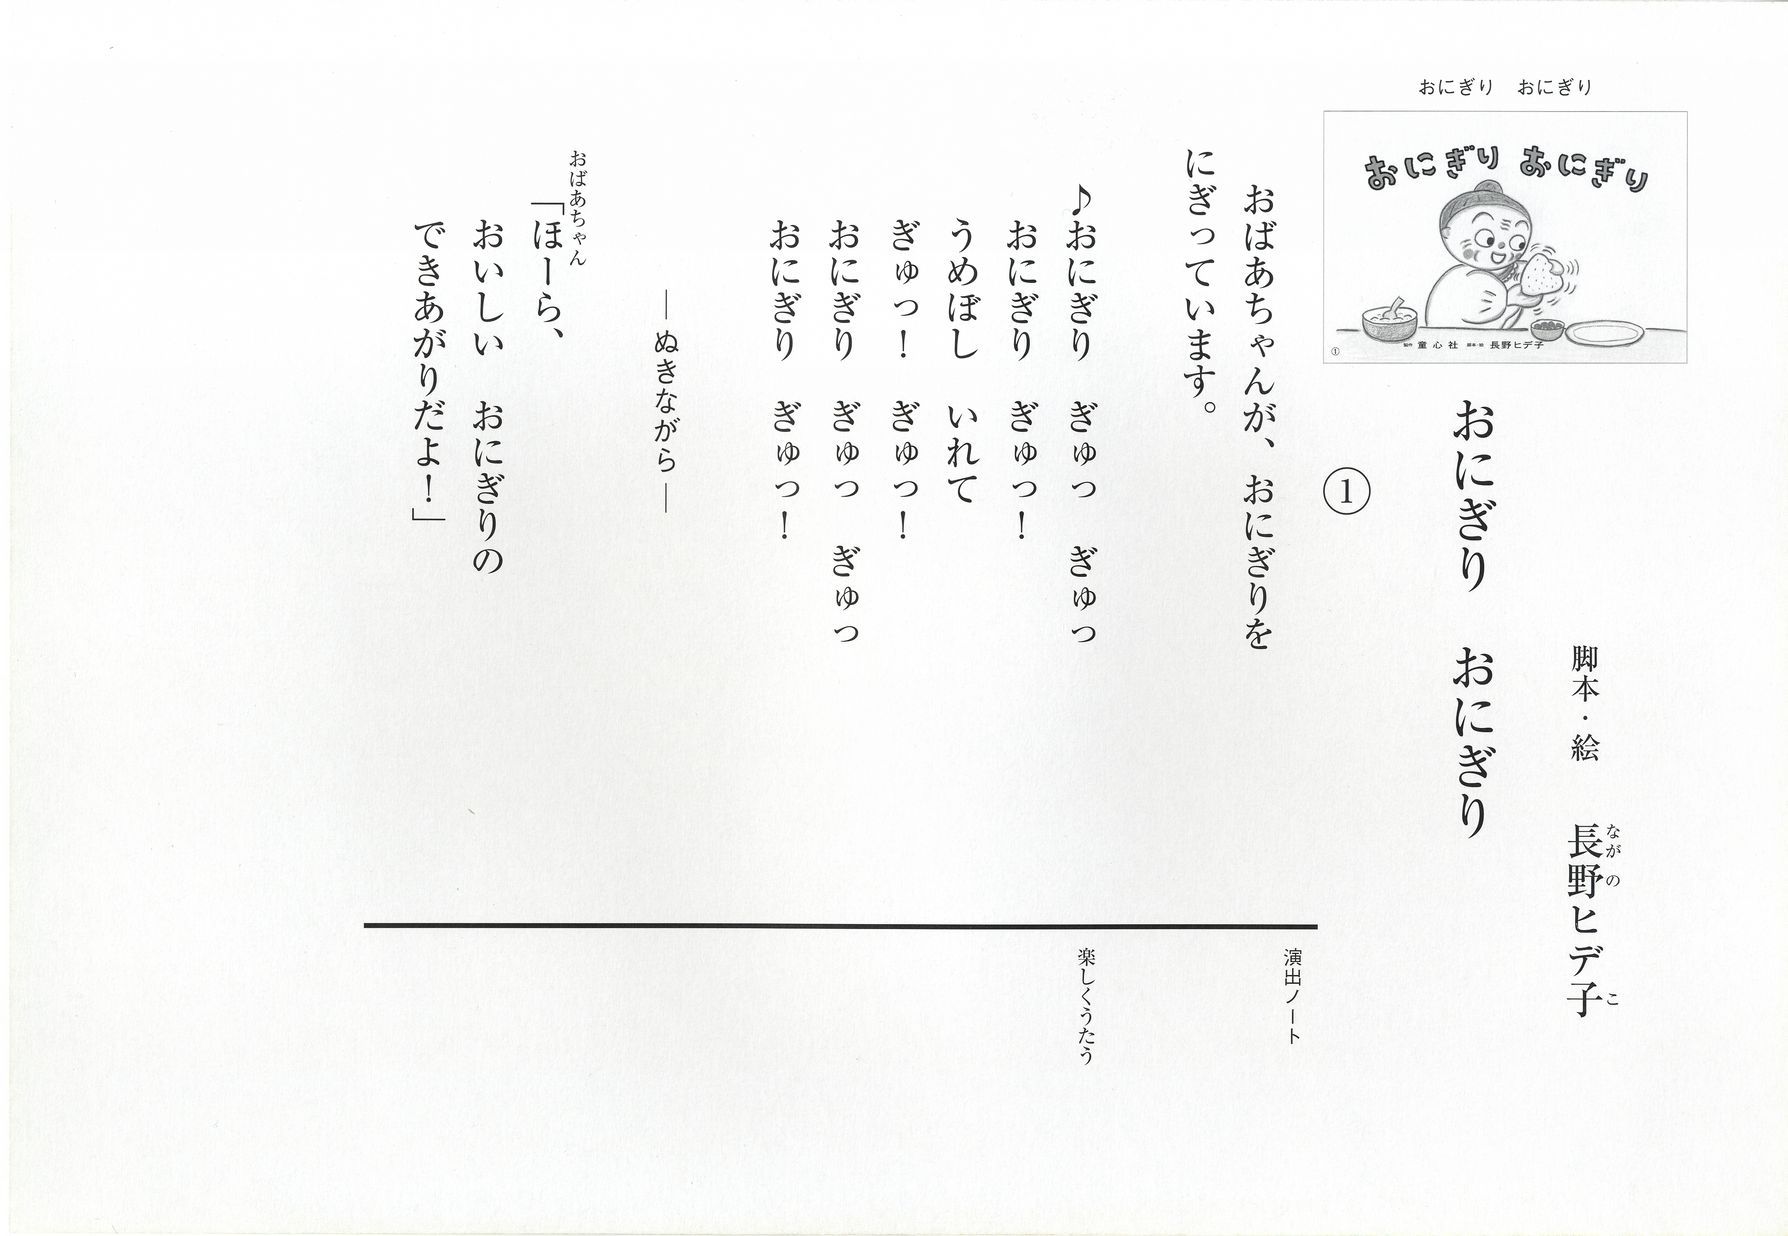 おにぎり　おにぎり
おにぎり おにぎり
① 製作 童心社 脚本・絵 長野ヒデ子
脚本・絵　長野ヒデ子
ながの こ
おにぎり　おにぎり
①
おばあちゃんが、おにぎりを
にぎっています。
♪おにぎり　ぎゅっ　ぎゅっ
おにぎり　ぎゅっ！
うめぼし　いれて
ぎゅっ！　ぎゅっ！
おにぎり　ぎゅっ　ぎゅっ
おにぎり　ぎゅっ！
―ぬきながら―
おばあちゃん
「ほーら、
おいしい　おにぎりの
できあがりだよ！」
演出ノート
楽しくうたう